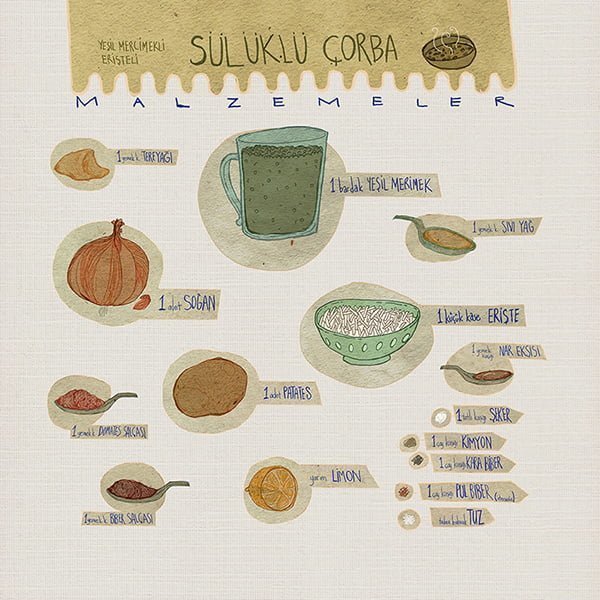 YEŞİL MERCİMEKLİ
ERİŞTELİ
SÜLÜKLÜ ÇORBA
MALZEMELER
1 yemek k. TEREYAĞI
1 bardak YEŞİL MERİMEK
1 yemek k. SIVI YAĞ
1 adet SOĞAN
1 küçük kase ERİŞTE
1 yemek
kaşığı NAR EKŞİSİ
1 adet PATATES
1 tatlı kaşığı ŞEKER
1 yemek k. DOMATES SALÇASI
1 çay kaşığı KİMYON
1 çay kaşığı KARA BİBER
yarım LİMON
1 çay kaşığı PUL BİBER
1 yemek k. BİBER SALÇASI
TUZ